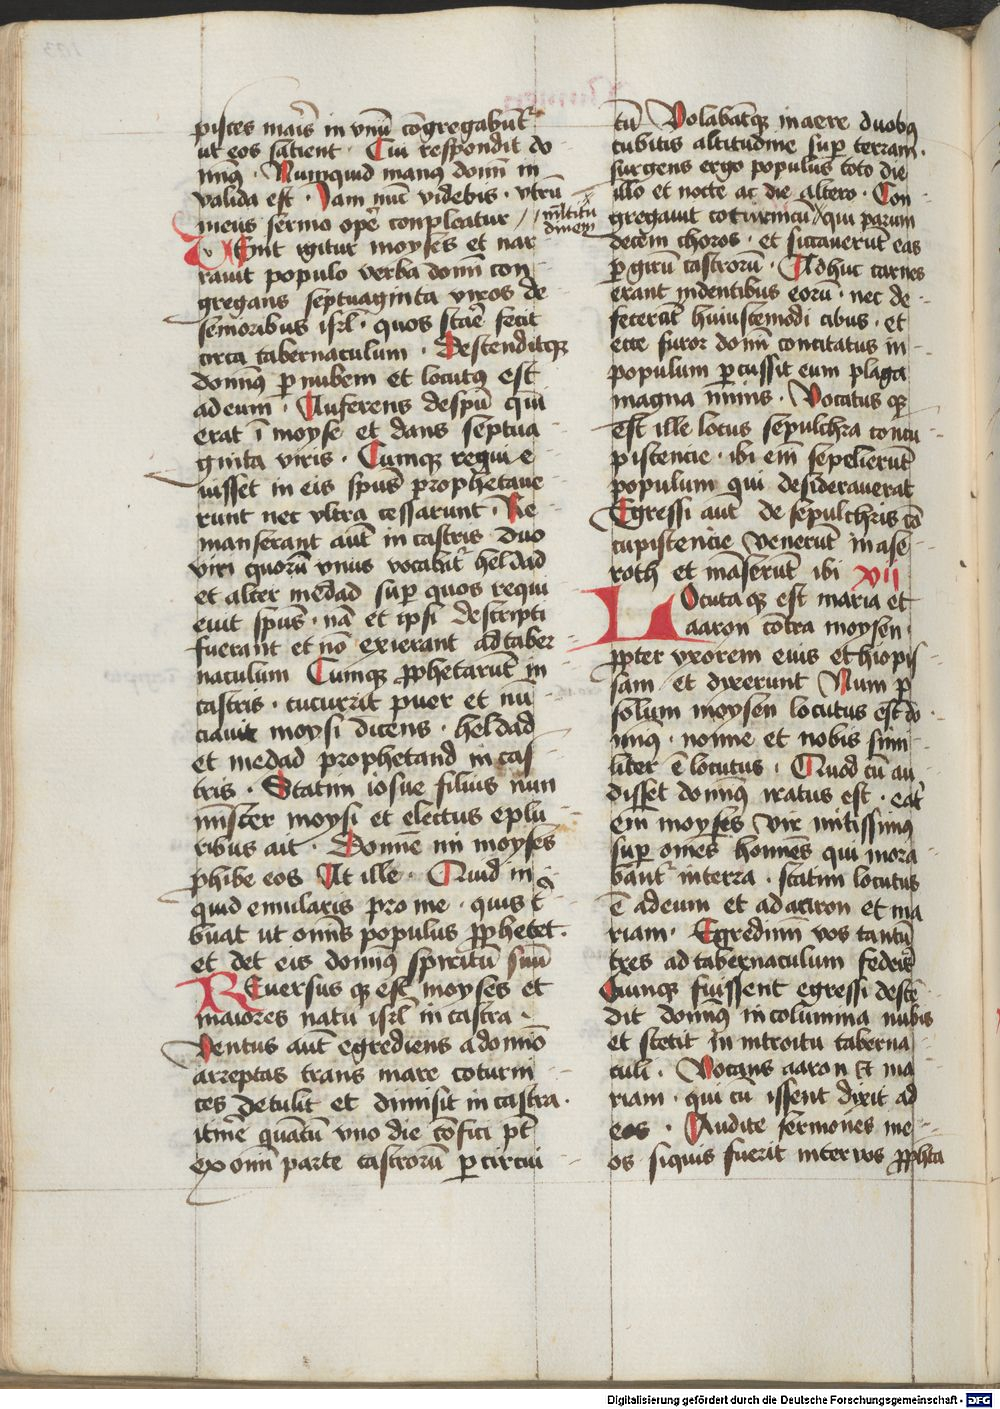 pisces maris in vnū cōgregabūt᷑
ut eos sacient · Cui respondit do
minꝰ · Numquid manus domī in
valida est · Iam nūc videbis · vtrū
meus sermo oper̄e conpleatur //
VEnit igitur moyses et nar
rauit populo verba domī con
gregans septuaginta viros de
senioribus isrl̄ · quos stāe fecit
circa tabernaculum · Descenditqꝫ
dominꝰ ꝑ nubem et locutꝰ est
ad eum · Auferens de spū qui
erat ī moyse et dans septua
ginta viris · Cumqꝫ requi e
uisset in eis spūs prophetaue
runt nec vltra cessarunt · Re
manserant aūt in castris duo
viri quorū vnus vocabat᷑ heldad
et alter medad suꝑ quos requi
euit spūs · nā et ipsi descripti
fuerant et nō exierant ad taber
naculum Cumqꝫ ꝓphetarūt in
castris · cucurrit puer et nū
ciauit moysi dicens · heldad
et medad prophetand in cas
tris · Statim iosue filius nun
minister moysi et electus e plu
ribus ait · Domine mi moyses
ꝓhibe eos At ille · Quid in
quid emularis pro me · quis t
buat ut omīs populus ꝓphetet ·
et det eis dominꝰ spiritū suū
REuersus qꝫ est moyses et
maiores natu isrl̄ in castra ·
Ventus aūt egrediens a domīo
arreptas trans mare coturni
ces detulit et dimisit in castra ·
itīne quātū vno die cōfici pt̄
ex omī parte castrorū ꝑ circui
multitu
dinem
tū Volabātqꝫ in aere duobꝰ
cubitis altitudine suꝑ terram ·
surgens ergo populus toto die
illo et nocte ac die altero · Con
gregauit coturnicū qui parum
decem choros · et siccauerūt eas
ꝑ girū castrorū · Adhuc carnes
erant in dentibus eorū · nec de
fecerāt huiuscemodi cibus · et
ecce furor domī concitatus in
populum ꝑcussit eum plaga
magna nimis · Vocatus qꝫ
est ille locus sepulchra concu
piscencie · ibi enī sepelierūt
populum qui desiderauerat
Egressi aūt de sepulchris cō
cupiscencie venerūt in ase
roth et māserūt ibi XII
LOcuta qꝫ est maria et
aaron cōtra moysen ·
ꝓpter vxorem eius ethiopis
sam et dixerunt Num ꝑ
solum moysen locutus est do
minꝰ · nonne et nobis simi
liter ē locutus · Quod cū au
disset dominꝰ iratus est · erat
enī moyses vir mitissimꝰ
suꝑ omēs homīes qui mora
bant᷑ in terra · statim locutus
ē ad eum et ad aaron et ma
riam · Egredimī vos tantū
tres ad tabernaculum federis
Cumqꝫ fuissent egressi descē
dit dominꝰ in columna nubis
et stetit in introitu taberna
culi · Vocans aaron et ma
riam · qui cū issent dixit ad
eos · Audite sermones me
os siquis fuerit inter vos ꝓpheta
Digitalisierung gefördert durch die Deutsche Forschungsgemeinschaft - DFG